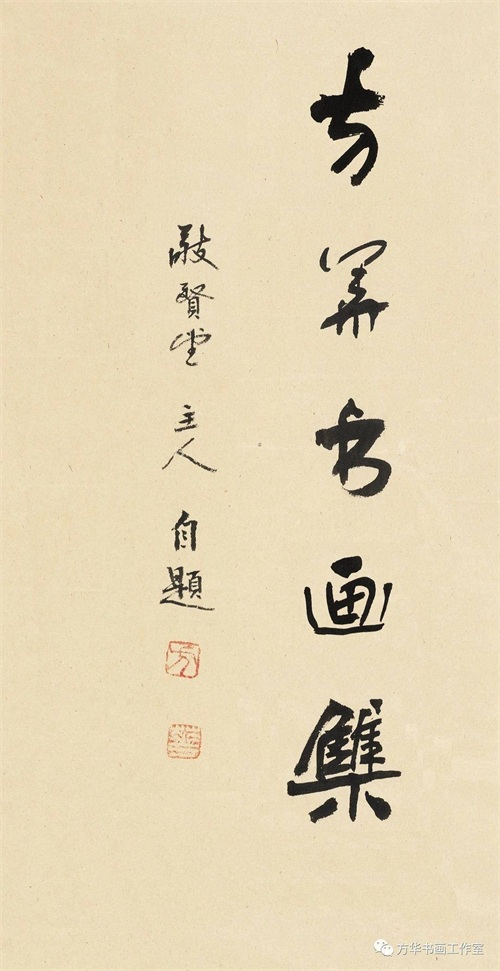 方華书画集
敬賢堂主人自題
方
華
方华书画工作室